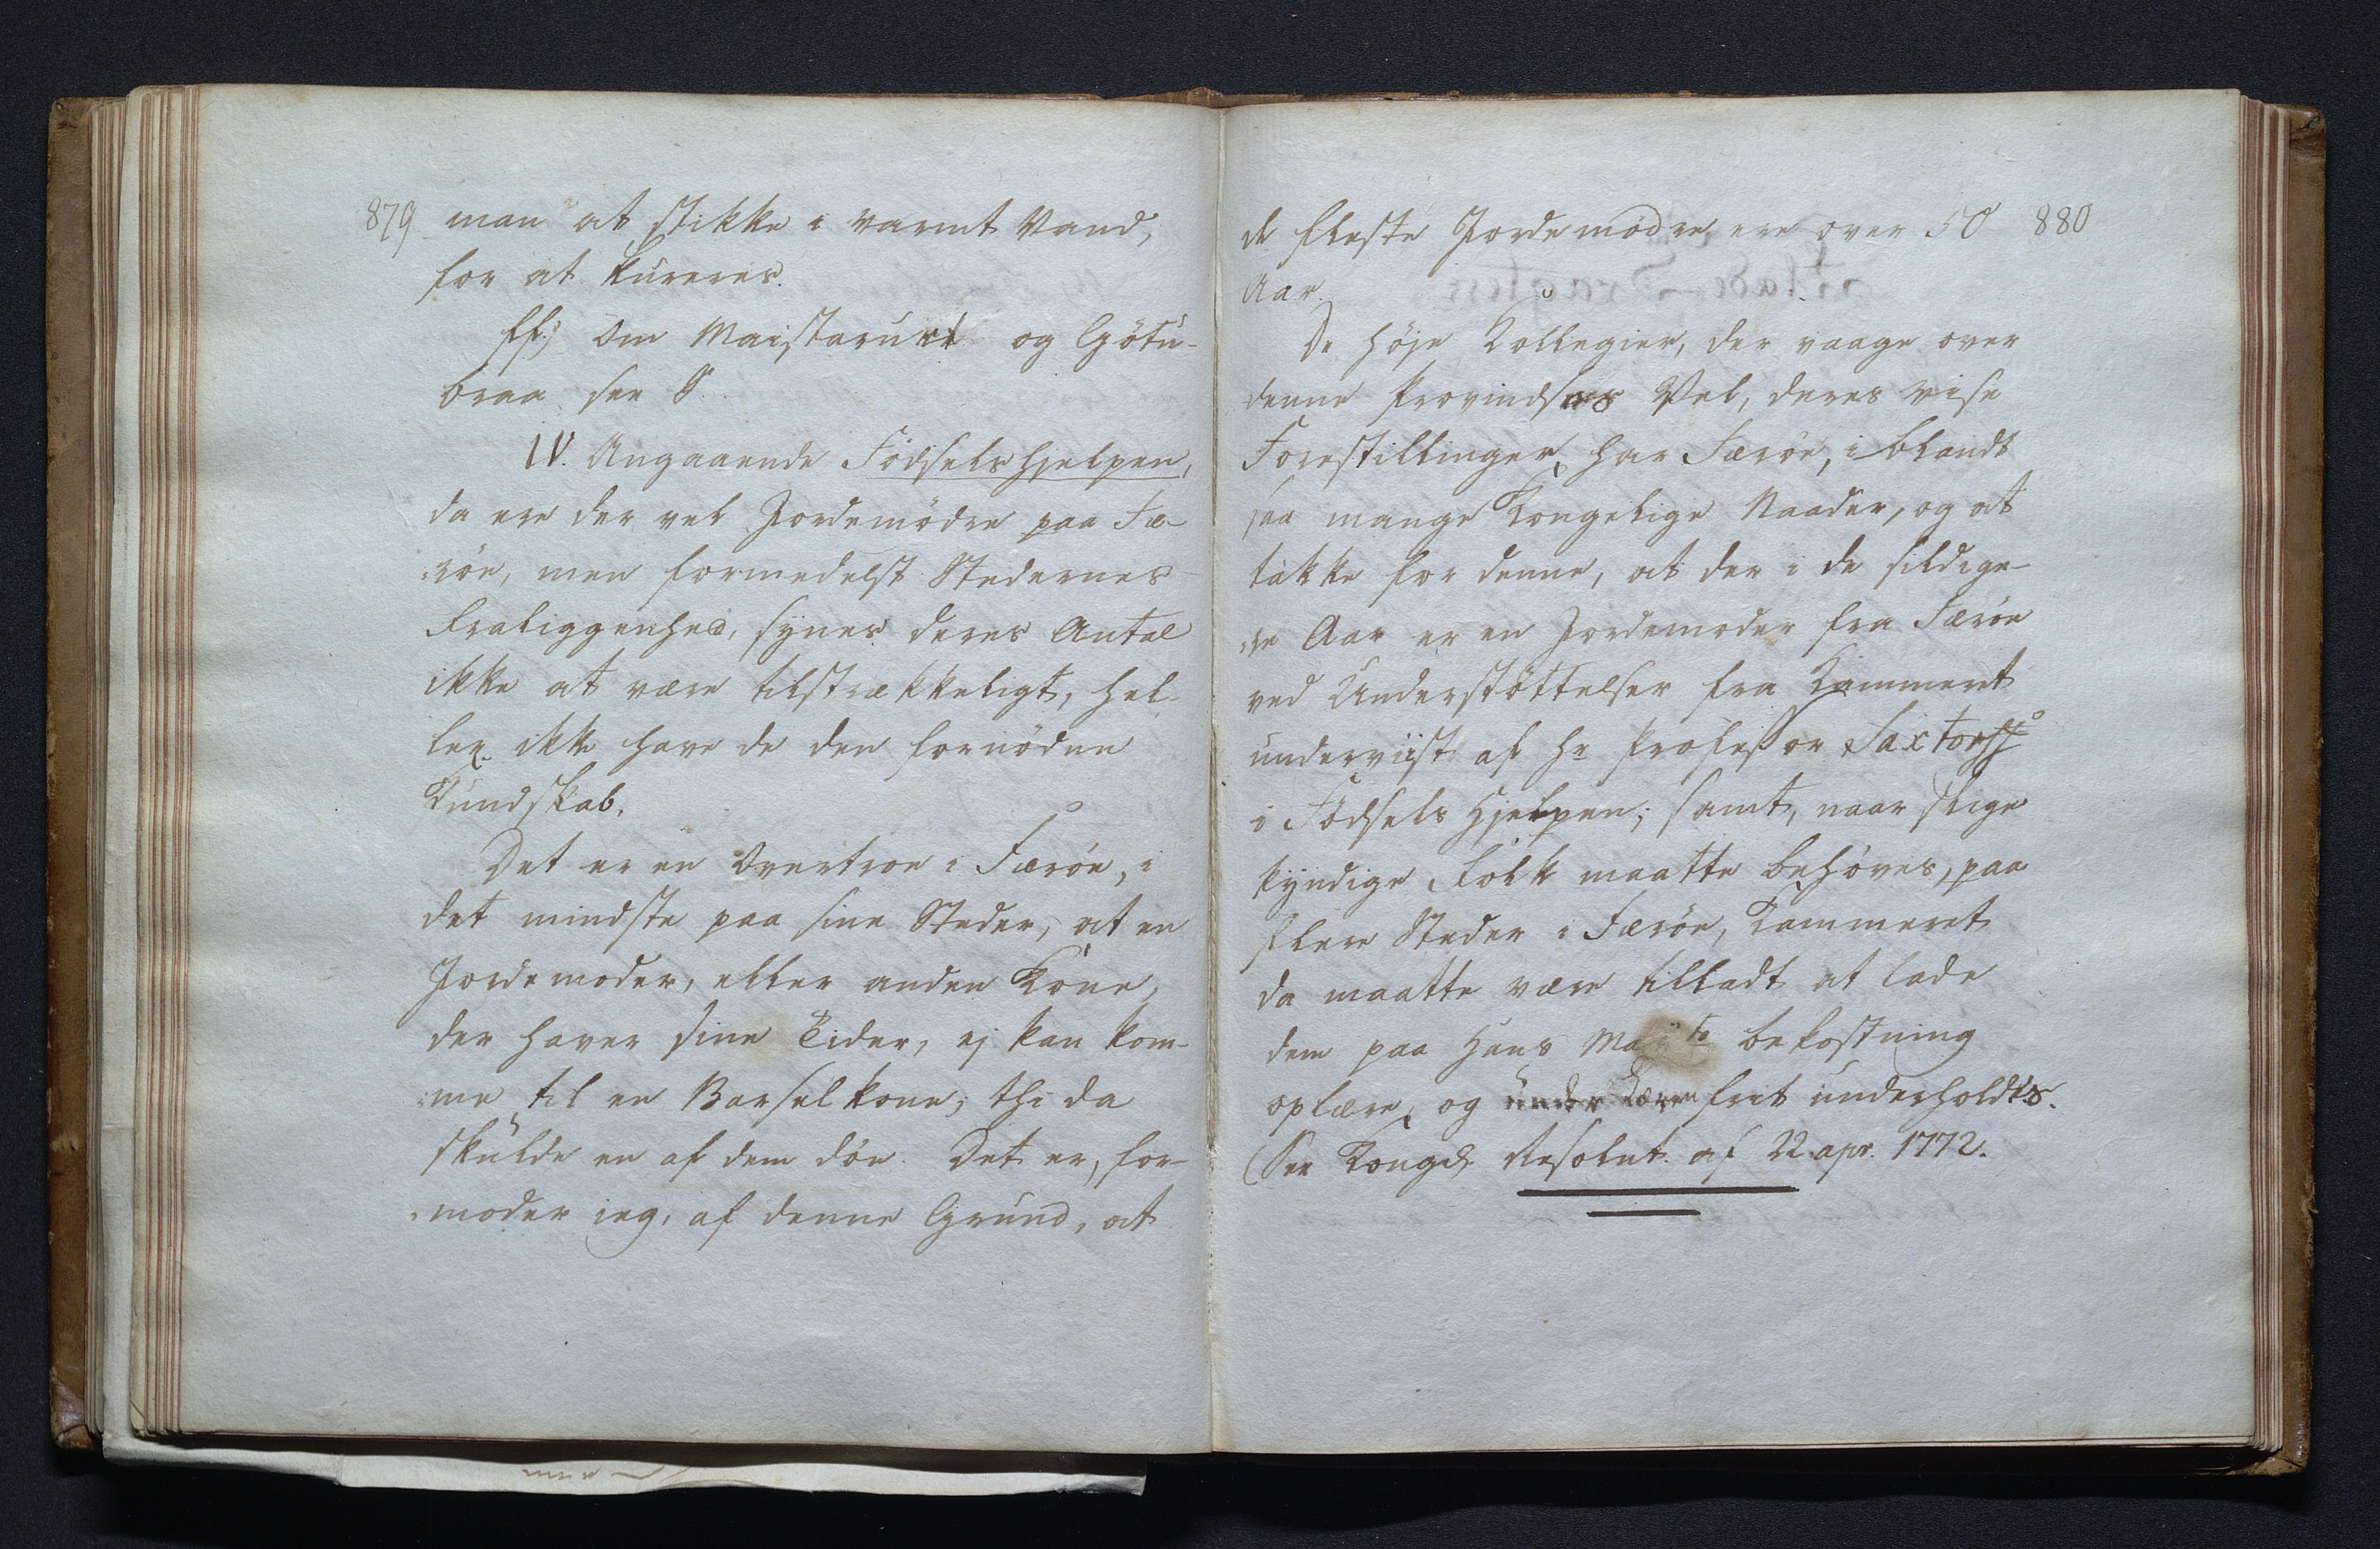 879 man at stikke i varmt Vand,
for at kureres.
ff.) Om Maistarurt og Götu-
braa see §.
IV. Angaaende Födselshjelpen,
da ere der vel Jordemödre paa Fæ-
röe, men formedelst Stedernes
Fraliggenhed, synes deres Antal
ikke at være tilstrækkeligt, hel-
ler ikke have de den fornödne
Kundskab.
Det er en Overtroe i Færöe, i
det mindste paa sine Steder, at en
Jordemoder, eller anden Kone,
der haver sine Tider, ej kan kom-
me til en Barselkone; thi da
skulde en af dem döe. Det er, for-
moder ieg, af denne Grund, at
de fleste Jordemödre ere over 50 880
Aar.
De höje Kollegier, der vaage over
denne Provindses Vel, deres vise
Forestillinger, har Færöe, iblandt
saa mange Kongelige Naader, og at
takke for denne, at der i de sildige-
re Aar er en Jordemoder fra Færöe
ved Understöttelser fra Kammeret
underviist af Hr Professor Saxtorph
i Födsels Hjelpen; samt, naar slige
kyndige Folk maatte behöves, paa
flere Steder i Færöe, Kammeret
da maatte være tilladt at lade
dem paa Hans May ts bekostning
oplære, og under Læren frit underholdes.
(See Kongel. Resolut. af 22. apr. 1772.